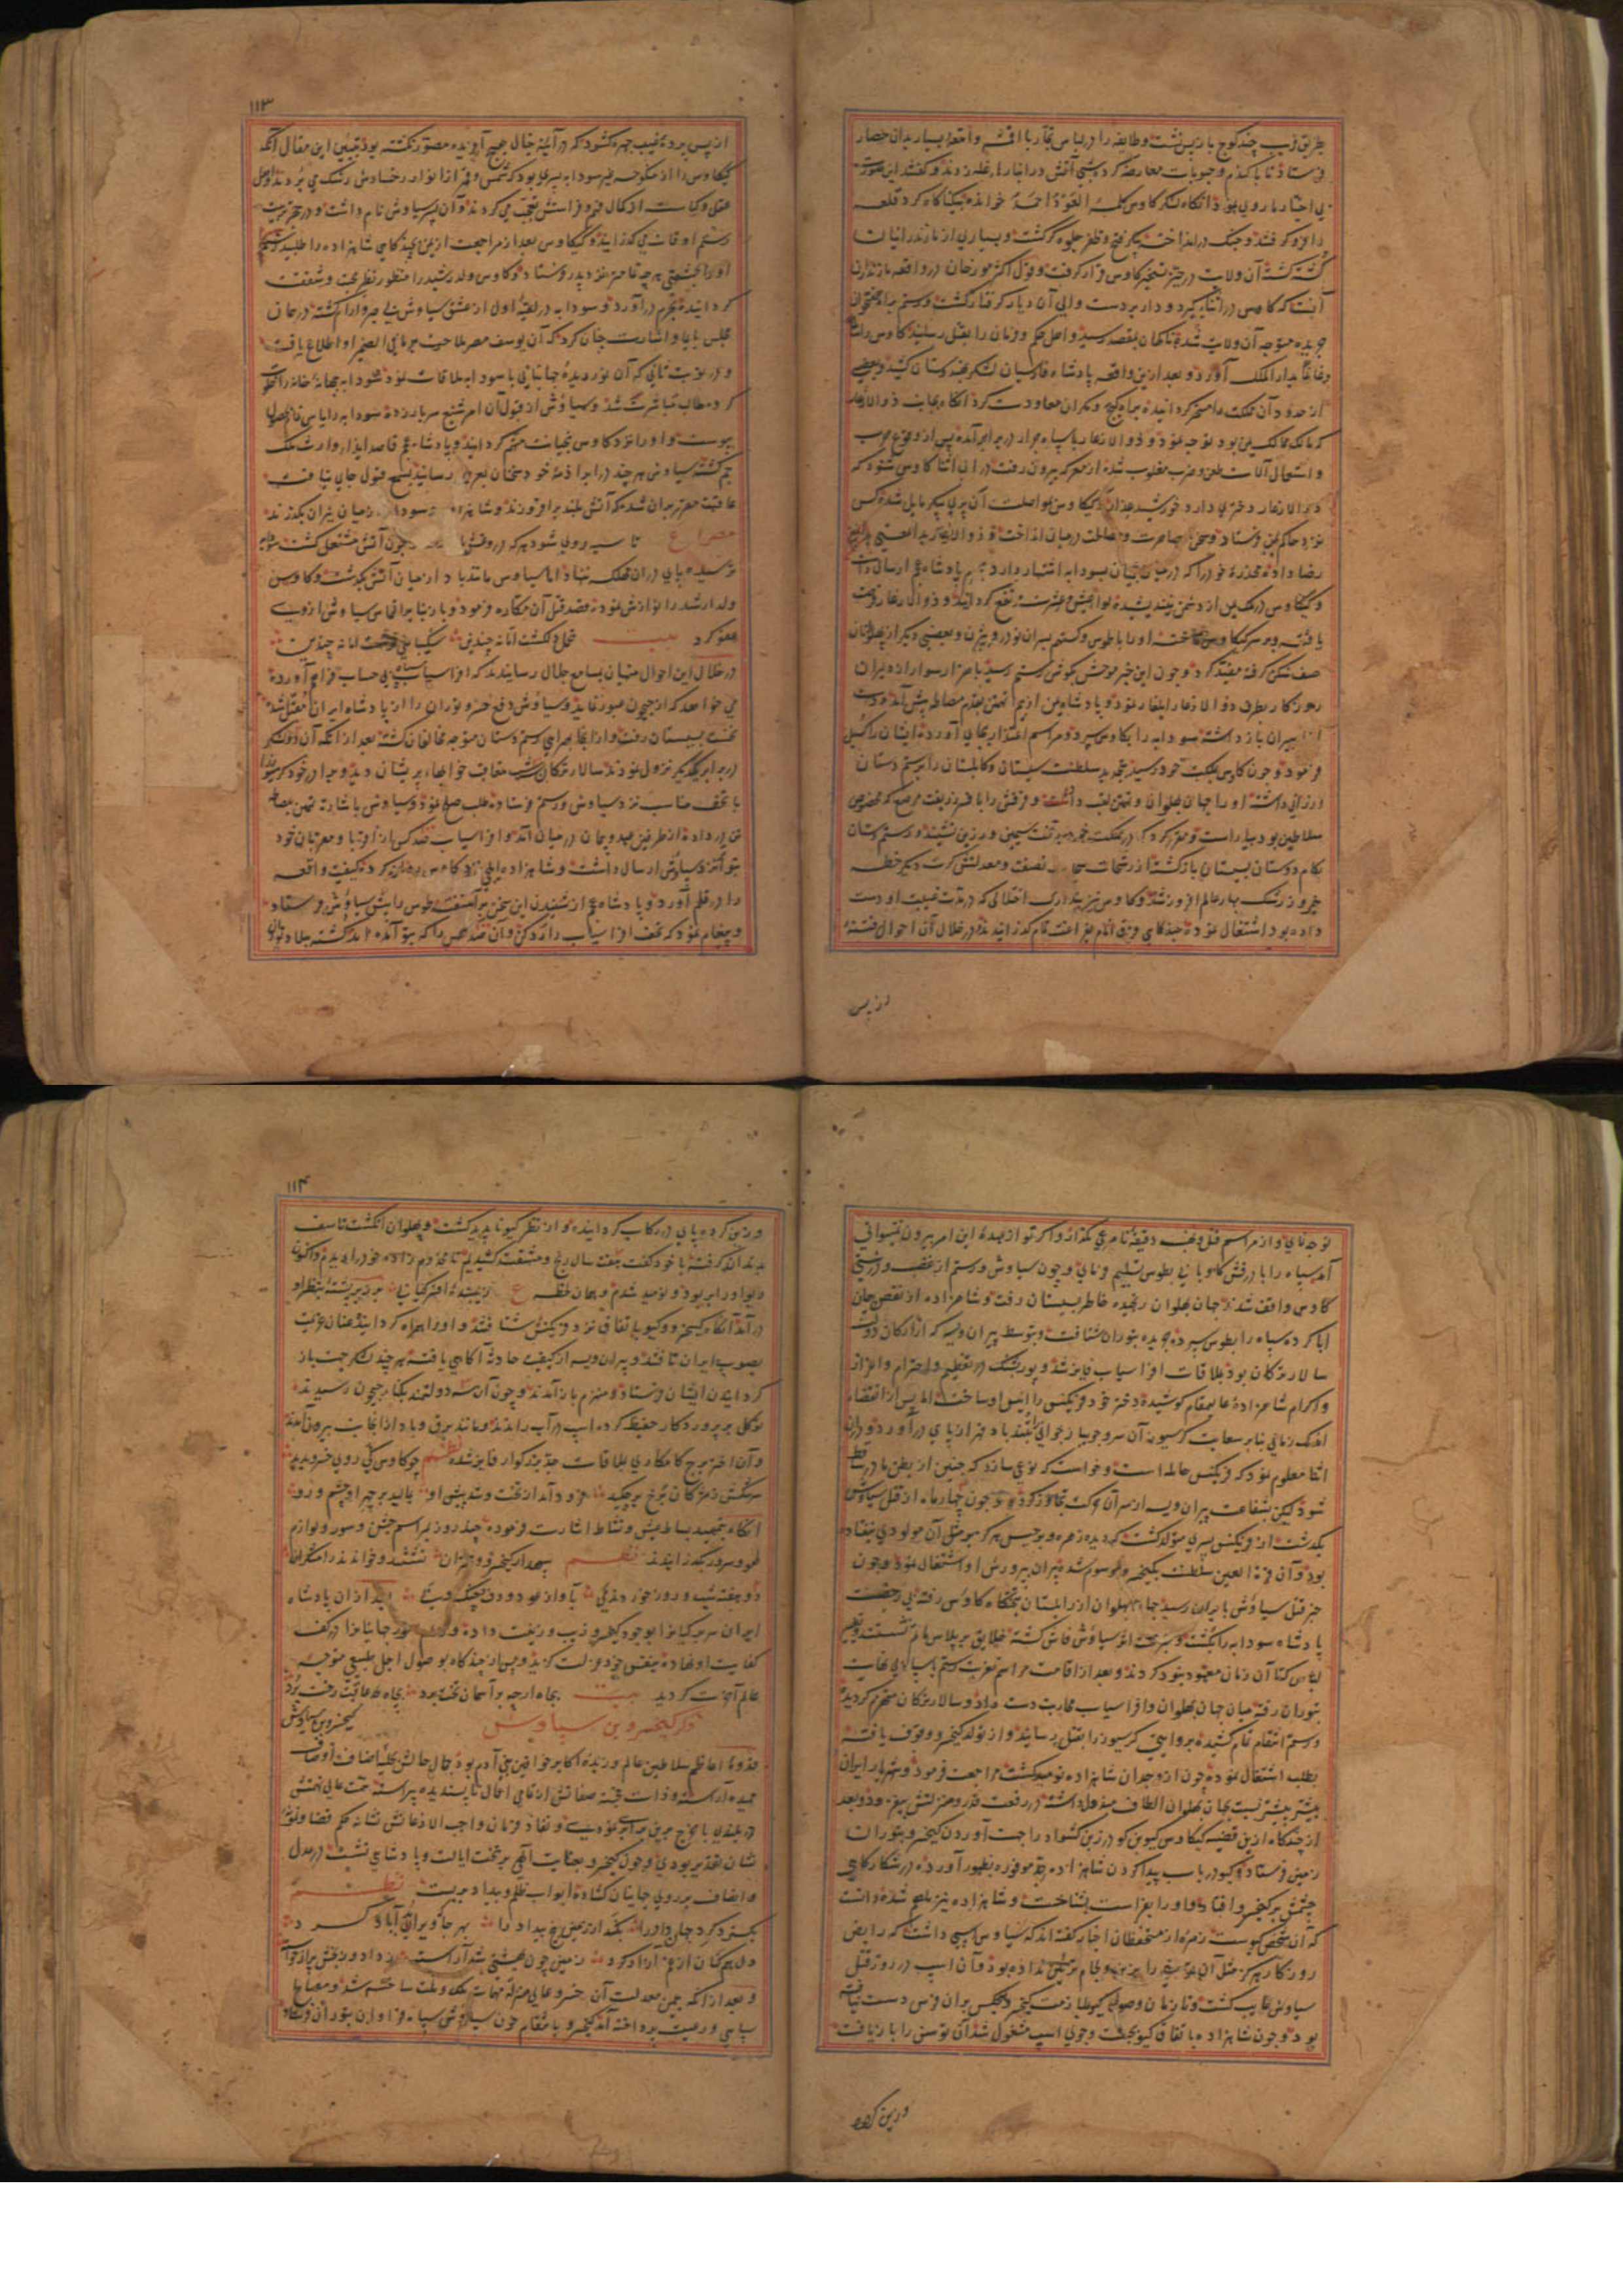 بطریق فریب چند کوچ باز پس نشست و طایفه را در لباس تجار با اقمشه و امتعه بسیار بدان حصار
فرستاد تا با گندم و حبوبات معاوضه کرده شبی آتش در انبارهای غله زدند و گفتند این صورت
بی اختیار ما روی نمود آنگاه لشکر کاوس کلمه العود احمد خوانده بیکناگاه گرد قلعه
را فرو گرفتند و جنگ در انداخته پیکر فتح و ظفر جلوه گر گشت و بسیاری از مازندرانیان
کشته گشته آن ولایت در حیز تسخیر کاوس قرار گرفت و قول اکثر مورخان در واقعه مازندران
آنست که کاوس در اثنای گیر و دار بر دست والی آن دیار گرفتار گشت و رستم براه هفتخوان
جریده متوجه آن ولایت شده ناگهان بمقصد رسید و اهل حکم و فرمان را بقتل رسانید کاوس را
بدار الملک آورد و بعد از این واقعه پادشاه فارسیان لشکر بهندوستان کشید و بعضی
از حدود آن مملکت را مسخر گردانیده براه کیج و مکران معاودت کرد آنگاه بجانب ذو الاذعار
که مالک ممالک یمن بود توجه نمود و ذو الاذعار با سپاه جرار در برابر آمده پس از وقوع حرب
و استعمال آلات طعن و ضرب مغلوب شده از معرکه بیرون رفت در این اثنا کاوس شنود که
ذو الاذعار دختری دارد خورشید عذار کیکاوس بمواصلت آن پری پیکر مایل شده کس
نزد حاکم یمن فرستاد و سخن مصاهرت و مصالحت در میان انداخت و ذو الاذعار بدین معنی
رضا داده مخدره خود را که در میان عجمیان بسودابه اشتهار دارد بحرم پادشاه عجم ارسال داشت
و کیکاوس در ملک یمن از دشمن نیندیشیده لوای عیش و عشرت مرتفع گردانید و ذو الاذعار فرصت
یافته بر سر کیکاوس تاخت و او را با طوس و گستهم پسران نوذر و بیژن و بعضی دیگر از پهلوانان
صف شکن گرفته مقید کرد و چون این خبر موحش بگوش رستم رسید با هزار سوار از دلیران
روزگار بطرف ذو الاذعار ایلغار نمود و پادشاه یمن از بیم تهمتن بقدم مصالحه پیش آمده دست
از امیران باز داشته سودابه را بکاوس سپرد و مراسم اعتذار بجای آورده ایشان را گسیل
فرمود و چون کاوس بمملکت خود رسید بتجدید سلطنت سیستان و کابلستان را برستم دستان
ارزانی داشته او را جهان پهلوان و تهمتن لقب داد و فرقش را بافسر زربفت مرصع که مخصوص
سلاطین بود بیاراست و مقرر کرد که در مملکت خود بر تخت سیمین و زرین نشیند و رستم دستان
بکام دوستان بسیستان بازگشته از رشحات سحاب نصفت و معدلتش کرت دیگر خطه
نیمروز رشک بهار عالم افروز شد و کاوس نیز بتدارک اختلالی که در مدت غیبت او دست
داده بود اشتغال نموده چندگاهی دیگر ایام بفراغت تمام گذرانیدند در خلال آن احوال فتنه
از پس
۱۱۳
از پس پرده غیب چهره گشود که در آینه خیال هیچ آفریده مصور نگشته بود تبیین این مقال آنکه
کیکاوس را از منکوحه غیر سودابه پسری بود که شمس و قمر از انوار رخسارش رشک می بردند و اهل
عقل و کیاست از کمال فهم و فراستش تعجب می کردند و آن پسر سیاوش نام داشت و در حجر تربیت
رستم اوقات می گذرانید و کیکاوس بعد از مراجعت از یمن شاهزاده را طلبید رستم
او را بحشمتی هرچه تمامتر نزد پدر فرستاد و کاوس ولد رشید را منظور نظر محبت و شفقت
گردانیده بحرم در آورد و سودابه در لقیه اول از عشق سیاوش بی صبر و آرام گشته در همان
مجلس بایما و اشارت چنان کرد که آن یوسف مصر ملاحت بر ما فی الضمیر او اطلاع یافت
و در نوبت ثانی که آن نور دیده جهانبانی با سودابه ملاقات نمود سودابه خانه را خلوت
کرد و طالب مباشرت شد و سیاوش از قبول آن امر شنیع سر باز زده سودابه را یاس تمام حصول
پیوست و او را نزد کاوس بخیانت متهم گردانید و پادشاه عجم قاصد ایذا و
گشته سیاوش هر چند در ابراء ذمه خود سخنان بعرض رسانید بسمع قبول جای نیافت
عاقبت مقرر بر آن شد که آتش بلند بر افروزند و شاهزاده و سودابه از میان نیران بگذرند
مصراع تا سیه روی شود هر که در و غش باشد چون آتش مشتعل گشت سودابه
ترسیده پای در آن مهلکه ننهاد اما سیاوش مانند باد از میان آتش بگذشت و کاوس
ولد ارشد را نوازش نموده قصد قتل آن مکاره فرمود و بار دیگر بنا بر التماس سیاوش از وی
عفو کرد بیت تحمل دلکشست اما نه چندین شکیبایی خوشست اما نه چندین
در خلال این احوال منهیان بمسامع جلال رسانیدند که افراسیاب سپاه بی حساب فراهم آورده
می خواهد که از جیحون عبور نماید و سیاوش دفع خسرو توران را از پادشاه ایران متقبل شده
نخست بسیستان رفت و از آنجا بهمراهی رستم دستان متوجه مخالفان گشته بعد از آنکه آن دو لشکر
در برابر یکدیگر نزول نمودند سالار ترکان شب خوابهای پریشان دید و هراس بر خود
با تحف مناسب نزد سیاوش و رستم فرستاده طلب صلح نمود و سیاوش باشارت تهمتن بمصالحه
تن در داده از طرفین عهد و پیمان در میان آمد و افراسیاب صد کس از اقربا و مقربان خود
بنوا نزد سیاوش ارسال داشت و شاهزاده ایلچی نزد کاوس روانه کرده کیفیت واقعه
را در قلم آورد و پادشاه عجم از شنیدن این سخن بر آشفت طوس را پیش سیاوش فرستاد
و پیغام نمود که تحف افراسیاب را رد کن و آن صد کس را که بنوا آمده اند کشته ببلاد توران
توجه نمای و از مراسم قتل و نهب دقیقه نامرعی مگذار و اگر تو از عهده این امر بیرون نمیتوانی
آمد سپاه را با درفش کاویانی بطوس تسلیم نمای و چون سیاوش و رستم از غضب و درشتی
کاوس واقف شدند جهان پهلوان رنجیده خاطر بسیستان رفت و شاهزاده از نقض پیمان
ابا کرده سپاه را بطوس سپرده جریده بتوران شتافت و بتوسط پیران ویسه که از ارکان دولت
سالار ترکان بود بملاقات افراسیاب فایز شد و پور پشنگ در تعظیم و احترام و اعزاز
و اکرام شاهزاده عالیمقام کوشیده دختر خود فرنگیس را انیس او ساخت اما پس از انقضاء
اندک زمانی بنا بر سعایت گرسیوز آن سرو جویبار جوانی را بتندباد قهر از پای در آورد و در آن
اثنا معلوم نمود که فرنگیس حامله است و خواست که نوعی سازد که جنین از بطن مادر ساقط
شود لیکن بشفاعت پیران ویسه از سر آن حرکت تجاوز کرد و چون چهار ماه از قتل سیاوش
بگذشت از فرنگیس پسری متولد گشت که دیده زهره و برجیس هرگز بمثل آن مولودی نیفتاده
بود و آن قرة العین سلطنت بکیخسرو موسوم شد پیران بپرورش او اشتغال نمود و چون
خبر قتل سیاوش بایران رسید جهان پهلوان از زابلستان بتختگاه کاوس رفته بی رخصت
پادشاه سودابه را بکشت و سر سیاوش فاش گشته خلایق بر پلاس ماتم نشستند و تغییر
لباس کما آن زمان معهود بود کردند و بعد از اقامت مراسم تعزیت رستم با سپاه بی نهایت
بتوران رفته میان جهان پهلوان و افراسیاب محاربت دست داد و سالار ترکان منهزم گردید
و رستم انتقام تمام کشیده بروایتی گرسیوز را بقتل رسانید و از تولد کیخسرو وقوف یافته
بطلب اشتغال نموده چون از وجدان شاهزاده نومید گشت مراجعت فرمود و شهریار ایران
بیشتر پیشتر نسبت بجهان پهلوان الطاف مبذول داشته در رفعت قدر و منزلتش بیفزود و بعد
از چندگاه ازین قضیه کیکاوس گیو بن گودرز بن کشواد را جهت آوردن کیخسرو بتوران
زمین فرستاد و گیو در باب پیدا کردن شاهزاده جهد موفوره بظهور آورده در شکارگاهی
چشمش بر کیخسرو افتاد و او را بفراست بشناخت و شاهزاده نیز ملهم شده دانست
که آن شخص گیوست زمره از متحفظان اخبار گفته اند که سیاوس اسپی داشت که رایض
روزگار هرگز مثل آن مرکبی را بزین و لجام تزئین نداده بود و آن اسپ در روز قتل
سیاوش غایب گشت و تا زمان وصول گیو بملازمت کیخسرو هیچکس بر آن فرس دست نیافته
بود و چون شاهزاده باتفاق گیو بجست و جوی اسپ مشغول شد آن توسن را بازیافت
و زین کرده
۱۱۴
و زین کرده پای در رکاب گردانیده و از نظر گیو ناپدید گشت و پهلوان انگشت تاسف
بدندان گرفته با خود گفت هفت سال رنج و مشقت کشیدیم تا مخدوم زاده خود را دیدم و اکنون
دیو او را بربود و نومید شدم و همان لحظه ع زیبنده افسر کیانی بر پشته بنظر او
در آمد آنگاه کیخسرو و گیو باتفاق نزد فرنگیس شتافتند و او را همراه گردانیده عنان عزیمت
بصوب ایران تافتند و پیران ویسه از کیفیت حادثه آگاهی یافته هر چند لشکر جهت باز
گردانیدن ایشان فرستاد و منهزم باز آمدند و چون آن سه دولتمند بکنار جیحون رسیدند
توکل بر پروردگار حفیظ کرده اسپ در آب راندند و مانند برق و باد از آنجانب بیرون آمدند
و آن اختر برج کامکاری بملاقات جد بزرگوار فایز شد نظم چو کاوس کی روی خسرو بدید
سرشکش ز مژگان برخ بر چکید فرود آمد از تخت و شد پیش اوی بمالید بر چهر او چشم و روی
آنگاه بتمهید بساط عیش و نشاط اشارت فرموده چند روز بمراسم جشن و سور و لوازم
لهو و سرور بگذرانیدند نظم سپهدار کیخسرو و مهتران نشستند و خواندند رامشگران
دو هفته شب و روز خورد می بآواز عود و دف و چنگ و نی بعد از آن پادشاه
ایران سریر کیانرا بوجود کیخسرو زیب و زینت داده و امور جهانبانرا در کف
کفایت او نهاده بنفس خود عزلت گزید و پس از چندگاه بوصول اجل طبیعی متوجه
عالم آخرت گردید بیت بجاه ارچه بر آسمان تخت برد بچاه لحد عاقبت رخت برد
ذکر کیخسرو بن سیاوش
کیخسرو بن سیاوش
قدوه اعاظم سلاطین عالم و زبده اکابر خواقین بنی آدم بود جمال حالش بحلیه اصناف اوصاف
حمیده آراسته و ذات خجسته صفاتش از تمامی اعمال ناپسندیده پیراسته همت عالی نهمتش
در بلندی با چرخ برین برابری نمودی و نفاذ فرمان واجب الاذعانش نشانه حکم قضا
نشان تقدیر بودی و چون کیخسرو بعنایت الهی بر تخت ایالت و پادشاهی نشست در عدل
و انصاف بر روی جهانیان گشاده ابواب ظلم و بیداد بر بست نظم
بگسترد گرد جهان داد را بکند از زمین بیخ بیداد را بهر جا که ویرانی آباد کرد
دل غمگنان از غم آزاد کرد زمین چون بهشتی شد آراسته ز داد و ز بخشش پر از خواسته
و بعد از آنکه بیمن معدلت آن خسرو عالی منزلت مهمات ملک و ملت ساخته شد و مصالح
سپاهی و رعیت پرداخته آمد کیخسرو بانتقام خون سیاوش سپاه فراوان بتوران فرستاد